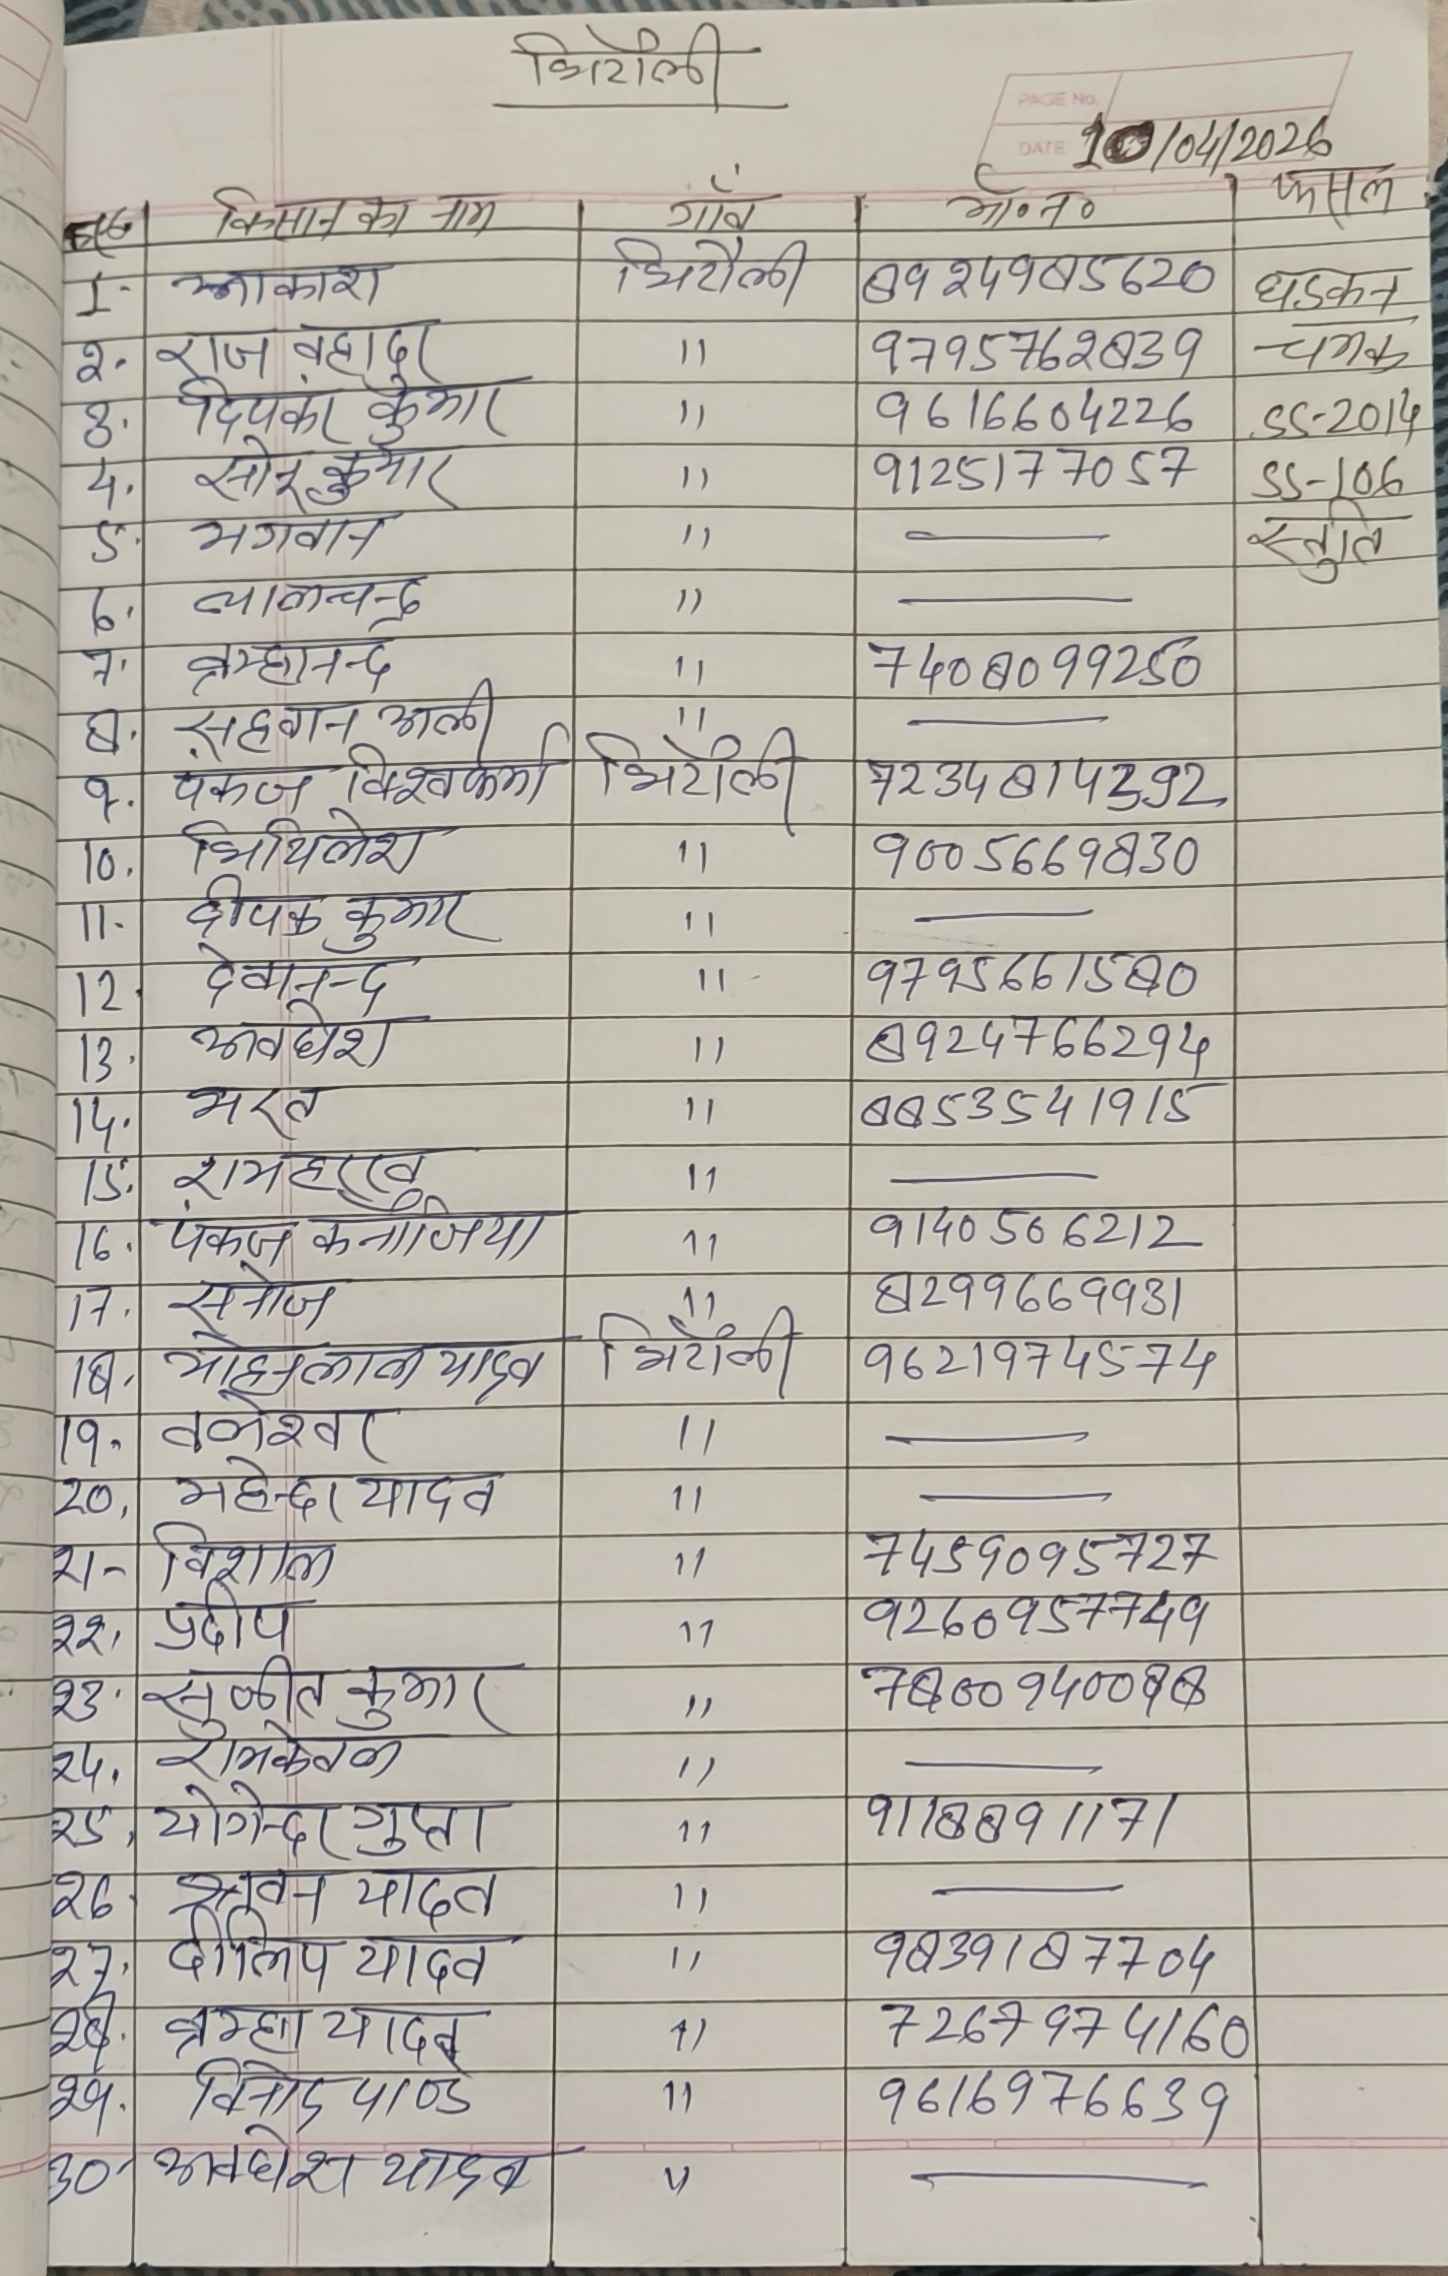 भिटौली
PAGE NO.
DATE 10/04/2026
किसान का नाम गाँव मो०न० फसल
1. आकाश भिटौली 8924985620 धडकन
2. राज बहादुर 11 9795762839 चमक
3. दिपका कुमार 11 9616604226 SS-2014
4. सोनू कुमार 11 9125177057 SS-106
5. भगवान 11 — स्तुति
6. लालचन्द्र 11 —
7. ब्रम्हानन्द 11 7408099250
8. सहवान अली 11 —
9. पंकज विश्वकर्मा भिटौली 7234814392
10. मिथिलेश 11 9005669830
11. दीपक कुमार 11 —
12. देवानन्द 11 9795661580
13. अवधेश 11 8924766294
14. भरत 11 8853541915
15. 11 —
16. पंकज कनौजिया 11 9140506212
17. सनोज 11 8299669931
18. मोहनलाल यादव भिटौली 9621974574
19. बलेश्वर 11 —
20. महेन्द्र यादव 11 —
21- विशाल 11 7459095727
22. प्रदीप 11 9260957749
23. सुजीत कुमार 11 7800940088
24. रामकेवल 11 —
25. योगेन्द्र गुप्ता 11 9118891171
26. यादव 11 —
27. दीलिप यादव 11 9839187704
28. ब्रम्हा यादव 11 7267974160
29. विनोद पाण्डे 11 9616976639
30. अवधेश यादव 11 —